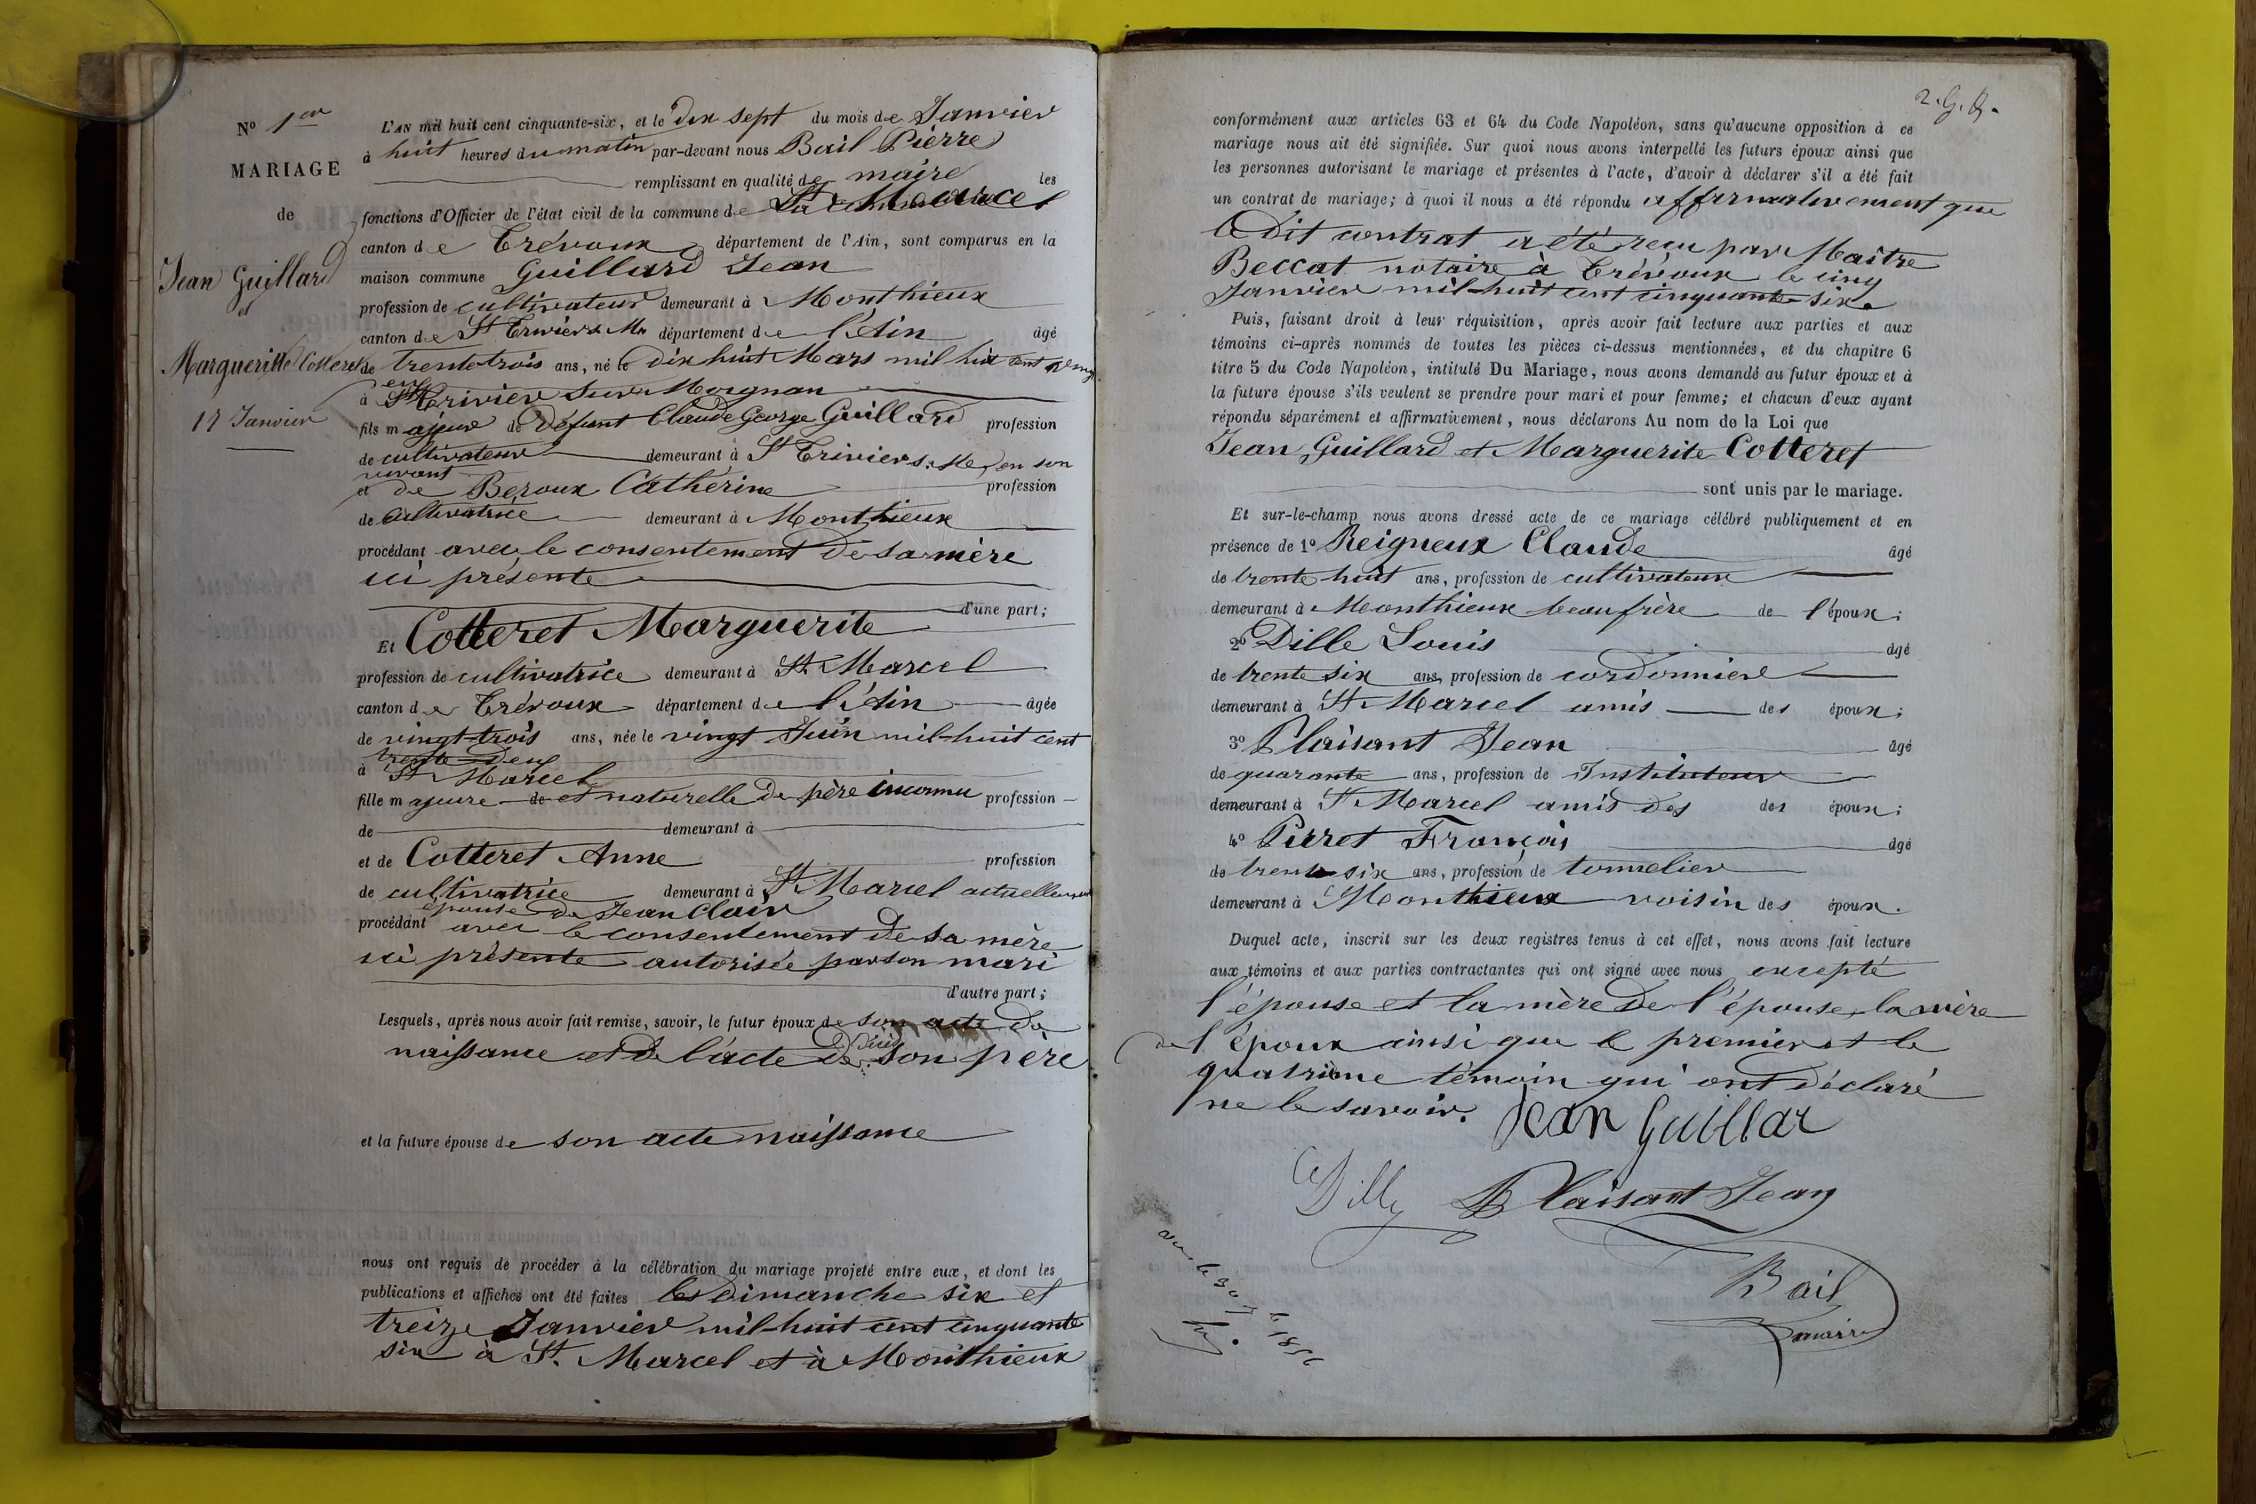 N° 1er
MARIAGE
de
Jean Guillard
et
Margueritte Cotteret
17 Janvier
L'AN mil huit cent cinquante-six, et le dix sept du mois de Janvier
à huit heures du matin par-devant nous Bail Pierre
remplissant en qualité de maire les
fonctions d'Officier de l'état civil de la commune de St Marcel
canton de Trévoux département de l'Ain, sont comparus en la
maison commune Guillard Jean
profession de cultivateur demeurant à Monthieux
canton de St Triviers Mn département de l'Ain âgé
de trente trois ans, né le dix huit Mars mil huit cent
à St Trivier sur Moignan
fils majeur de Défunt Claude George Guillard profession
de cultivateur demeurant à St Triviers en son
vivant
et de Beroux Cathérine profession
de cultivatrice demeurant à Monthieux
procédant avec le consentement de sa mère
ici présente
d'une part;
Et Cotteret Marguerite
profession de cultivatrice demeurant à St Marcel
canton de Trévoux département de l'Ain âgée
de vingt-trois ans, née le vingt Juin mil-huit cent
trente deux
à St Marcel
fille majeure de et naturelle de père inconnu profession
de demeurant à
et de Cotteret Anne profession
de cultivatrice demeurant à St Marcel actuellement
épouse de Jean Clair
procédant avec le consentement de sa mère
ici présente autorisée par son mari
d'autre part;
Lesquels, après nous avoir fait remise, savoir, le futur époux de son acte de
naissance et de l'acte de son père
et la future épouse de son acte naissance
nous ont requis de procéder à la célébration du mariage projeté entre eux, et dont les
publications et affiches ont été faites les Dimanche six et
treize Janvier mil-huit cent cinquante
six à St. Marcel et à Monthieux
conformément aux articles 63 et 64 du Code Napoléon, sans qu'aucune opposition à ce
mariage nous ait été signifiée. Sur quoi nous avons interpellé les futurs époux ainsi que
les personnes autorisant le mariage et présentes à l'acte, d'avoir à déclarer s'il a été fait
un contrat de mariage; à quoi il nous a été répondu affirmativement que
le dit contrat a été reçu par Maître
Beccat notaire à Trévoux le cinq
Janvier mil-huit cent cinquante-six.
Puis, faisant droit à leur réquisition, après avoir fait lecture aux parties et aux
témoins ci-après nommés de toutes les pièces ci-dessus mentionnées, et du chapitre 6
titre 5 du Code Napoléon, intitulé Du Mariage, nous avons demandé au futur époux et à
la future épouse s'ils veulent se prendre pour mari et pour femme; et chacun d'eux ayant
répondu séparément et affirmativement, nous déclarons Au nom de la Loi que
Jean Guillard et Marguerite Cotteret
sont unis par le mariage.
Et sur-le-champ nous avons dressé acte de ce mariage célébré publiquement et en
présence de 1° Reigneux Claude âgé
de trente huit ans, profession de cultivateur
demeurant à Monthieux beau frère de l'époux;
2° Dille Louis âgé
de trente six ans, profession de cordonnier
demeurant à St Marcel amis des époux;
3° Plaisant Jean âgé
de quarante ans, profession de Instituteur
demeurant à St Marcel amis des des époux;
4° Pierret François âgé
de trente six ans, profession de tonnelier
demeurant à Monthieux voisin des époux.
Duquel acte, inscrit sur les deux registres tenus à cet effet, nous avons fait lecture
aux témoins et aux parties contractantes qui ont signé avec nous excepté
l'épouse et la mère de l'épouse, la mère
de l'époux ainsi que le premier et le
quatrième témoin qui ont déclaré
ne le savoir.
Jean Guillar
Dilly Plaisant Jean
Bail
maire